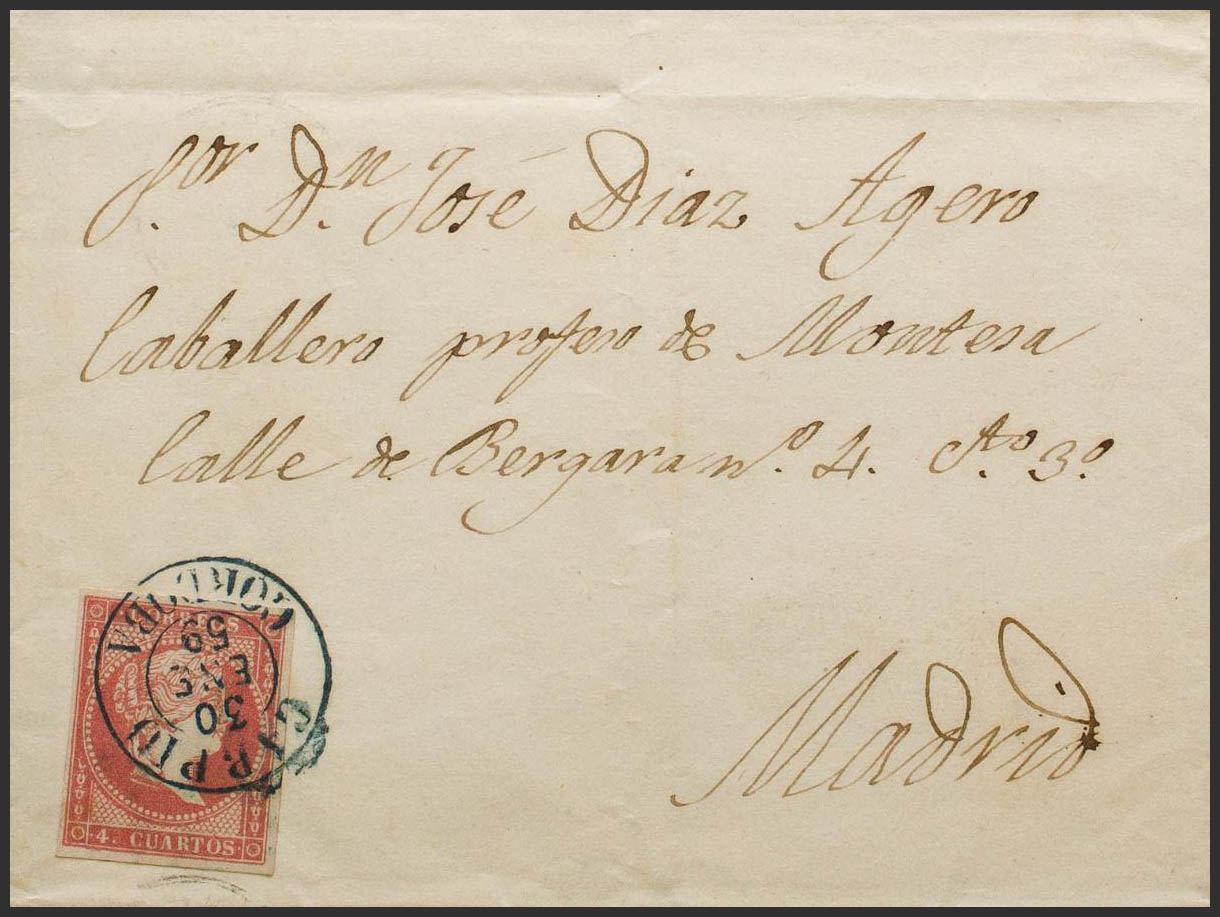 Sor. Dn. José Diaz Agero
Caballero profeso de Montesa
Calle de Bergara nº. 4. Cto. 3º.
Madrid
CARPIO
30
ENE
59
CORDOBA
CORREOS
4. CUARTOS.